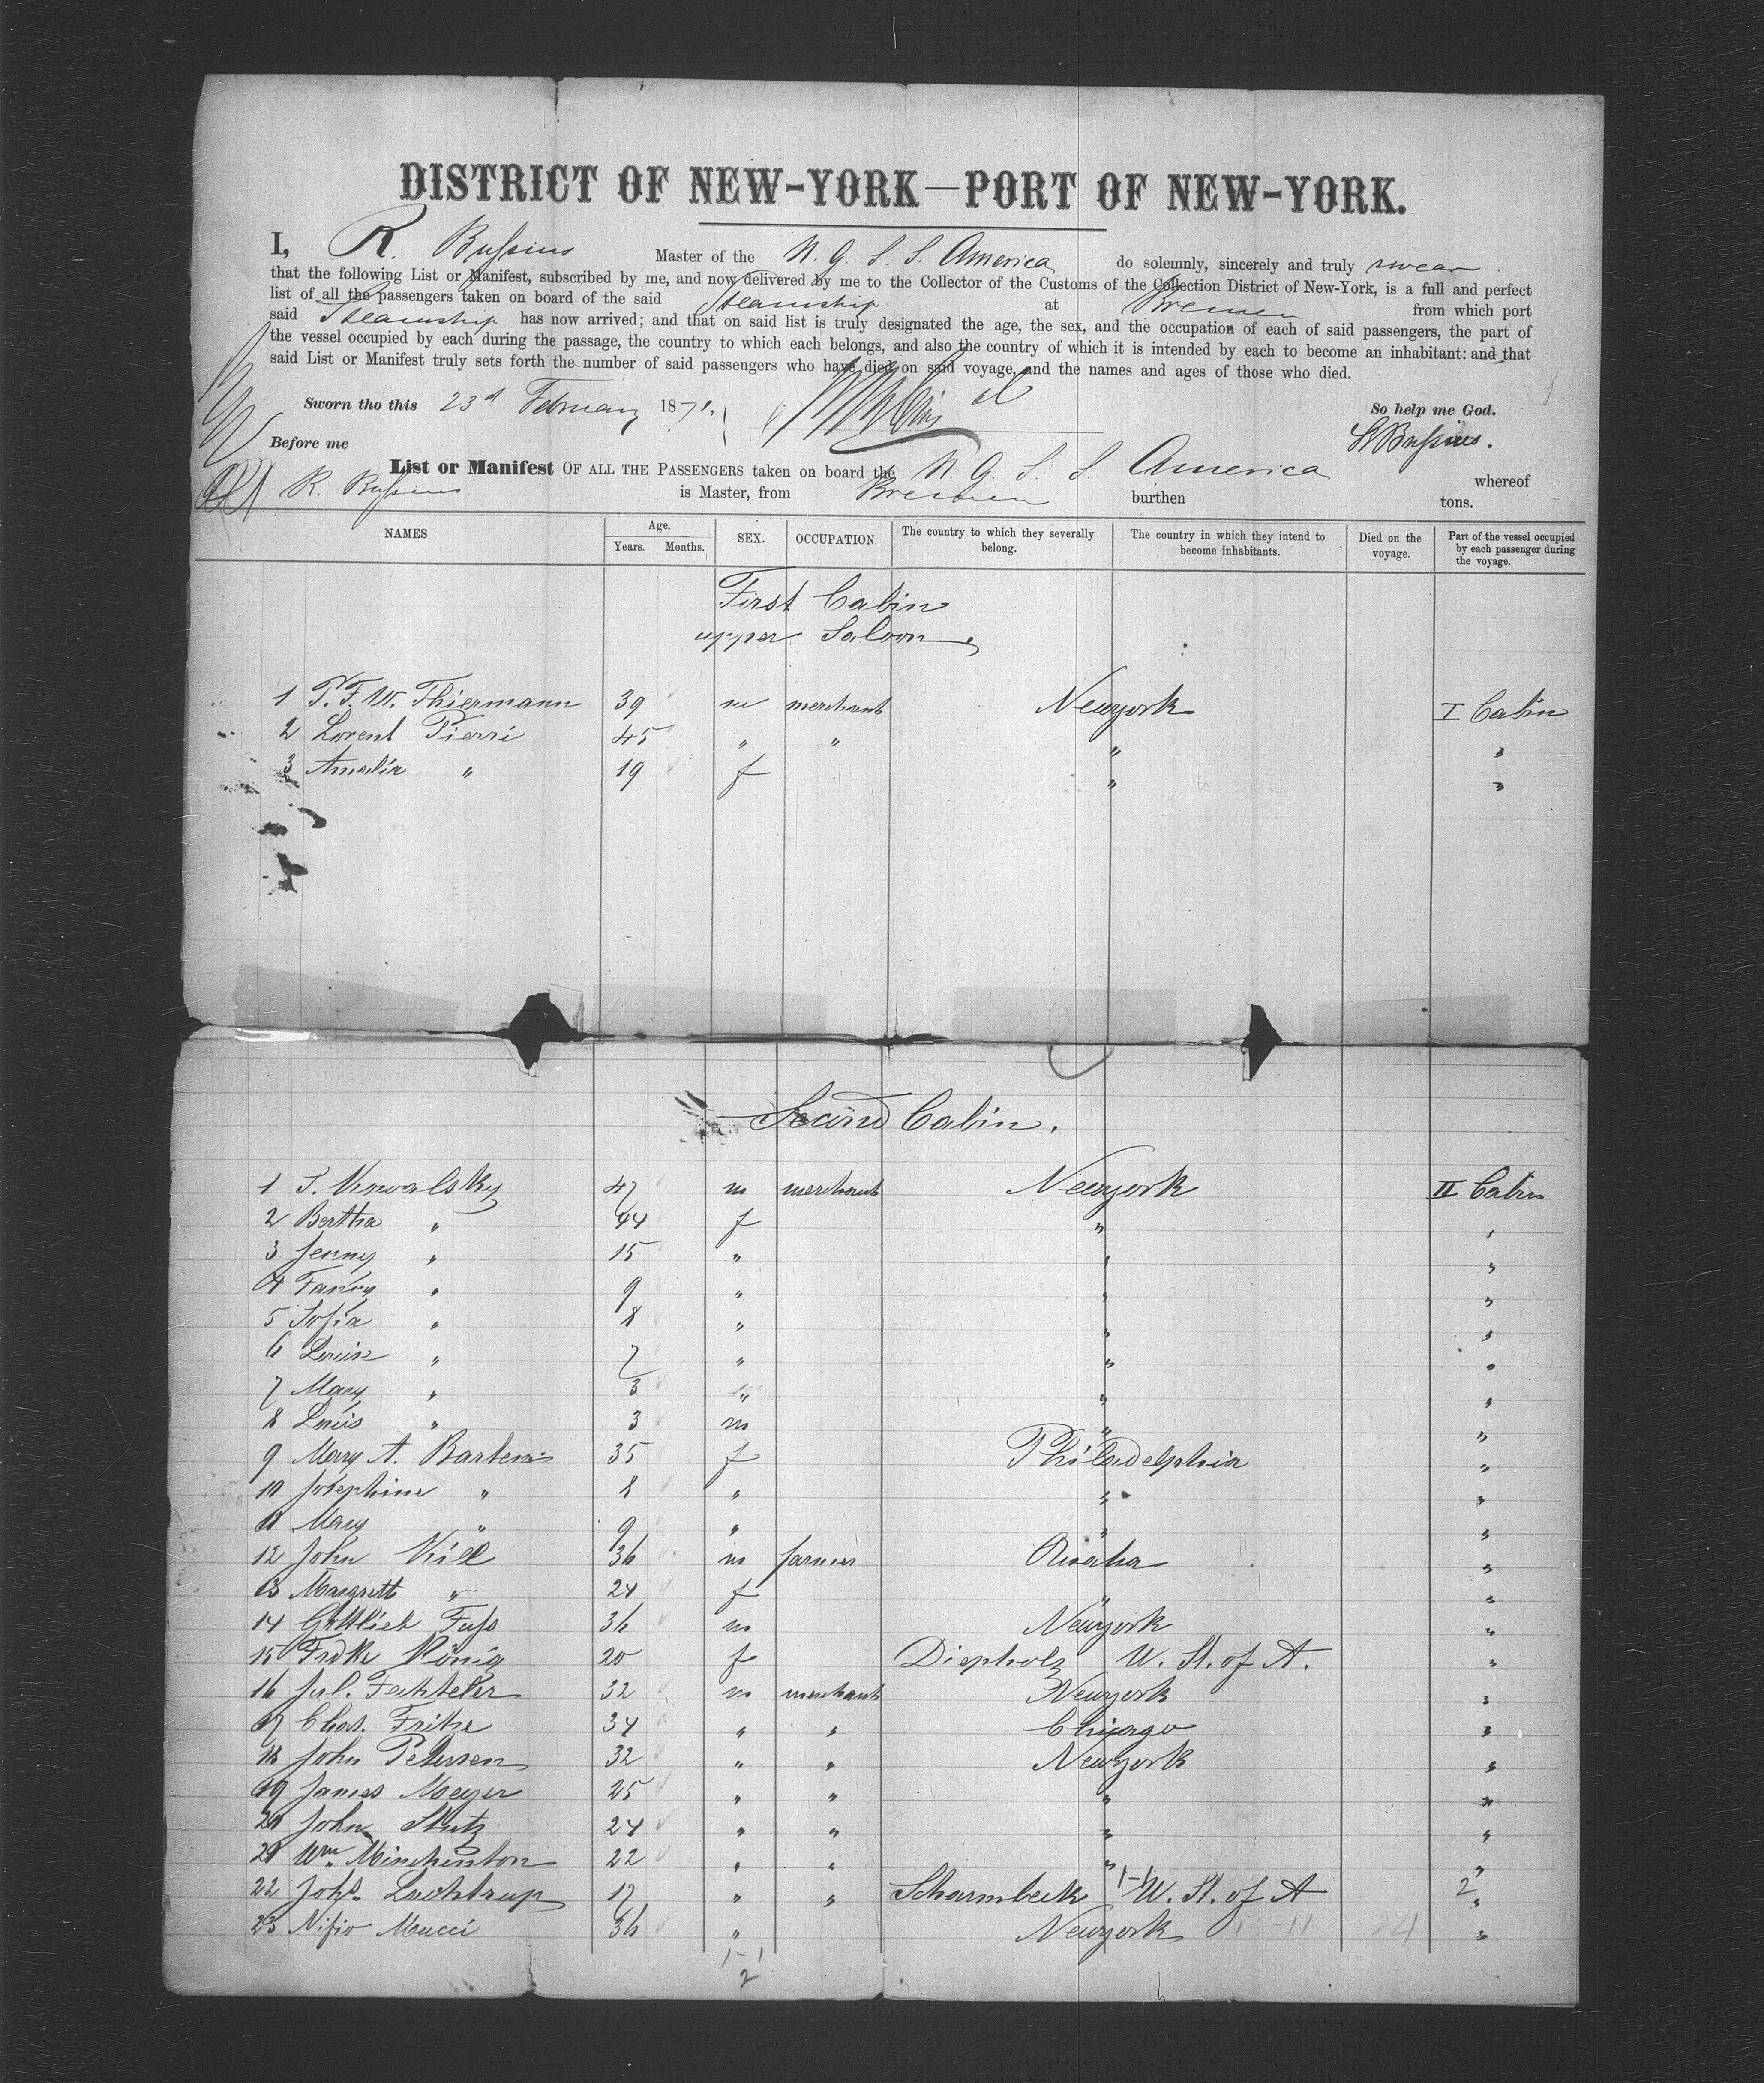 DISTRICT OF NEW-YORK—PORT OF NEW-YORK.
I, R. Bussius Master of the N. G. S. S. America do solemnly, sincerely and truly swear
that the following List or Manifest, subscribed by me, and now delivered by me to the Collector of the Customs of the Collection District of New-York, is a full and perfect
list of all the passengers taken on board of the said Steamship at Bremen from which port
said Steamship has now arrived; and that on said list is truly designated the age, the sex, and the occupation of each of said passengers, the part of
the vessel occupied by each during the passage, the country to which each belongs, and also the country of which it is intended by each to become an inhabitant: and that
said List or Manifest truly sets forth the number of said passengers who have died on said voyage, and the names and ages of those who died.
Sworn tho this 23d February 1871. So help me God.
Before me R Bussius.
List or Manifest OF ALL THE PASSENGERS taken on board the N. G. S. S. America whereof
R. Bussius is Master, from Bremen burthen tons.
NAMES Age. Years. Months. SEX. OCCUPATION. The country to which they severally belong. The country in which they intend to become inhabitants. Died on the voyage. Part of the vessel occupied by each passenger during the voyage.
First Cabin
upper Saloon
1 T. F. W. Thiermann 39 m merchant Newyork I Cabin
2 Lorent Pierri 45 " " " "
3 Amalia " 19 f " "
Second Cabin.
1 S. Kowalsky 47 m merchant Newyork II Cabin
2 Bertha " 44 f " "
3 Jenny " 15 " " "
4 Fanny " 9 " " "
5 Sofia " 8 " " "
6 Louise " 7 " " "
7 Mary " 3 " " "
8 Louis " 3 m " "
9 Mary A. Bartens 35 f Philadelphia "
10 Josephine " 8 " " "
11 Mary " 9 " " "
12 John Kill 36 m farmer Omaha "
13 Margrett " 24 f " "
14 Gottlieb Fuss 36 m Newyork "
15 Fredke König 20 f Diepholz W. St. of A. "
16 Jul. Fechteler 32 m merchant Newyork "
17 Chas. Fritze 34 " " Chicago "
18 John Petersen 32 " " Newyork "
19 James Meyer 25 " " " "
20 John Stutz 24 " " " "
21 Wm. Minchinton 22 " " " "
22 Johs. Lachtrup 17 " " Scharmbeck W. St. of A "
23 Mucci 36 " Newyork "